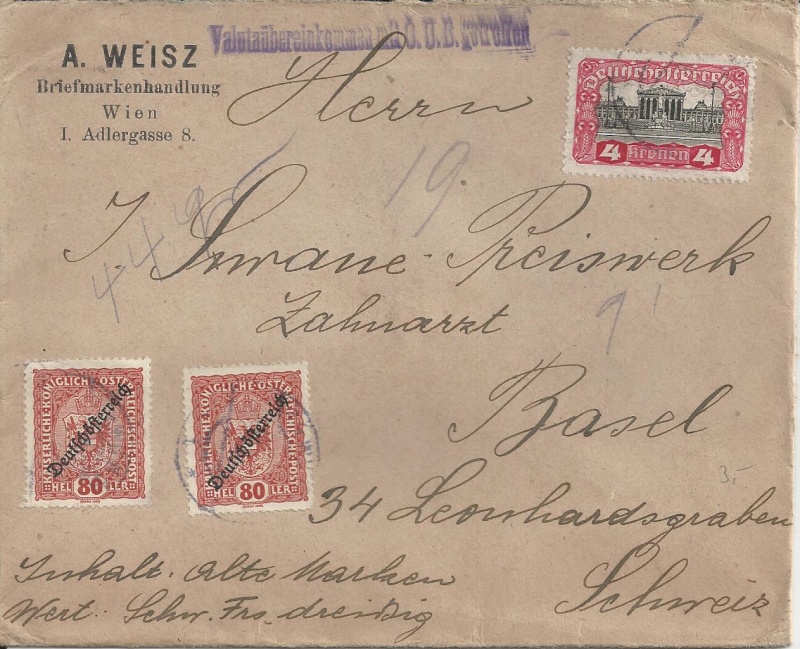 Valutaübereinkommen mit Ö.U.B. getroffen
A. WEISZ
Briefmarkenhandlung
Wien
I. Adlergasse 8.
Deutschösterreich
4 Kronen 4
Herrn
19.
449
J. Swane-Preiswerk
Zahnarzt
9
Basel
KAISERLICHE KÖNIGLICHE ÖSTERREICHISCHE POST
Deutschösterreich
HELLER
80
KAISERLICHE KÖNIGLICHE ÖSTERREICHISCHE POST
Deutschösterreich
HELLER
80
3.-
34 Leonhardsgraben
Schweiz
Inhalt: Alte Marken
Wert: Schw. Frs. dreißig